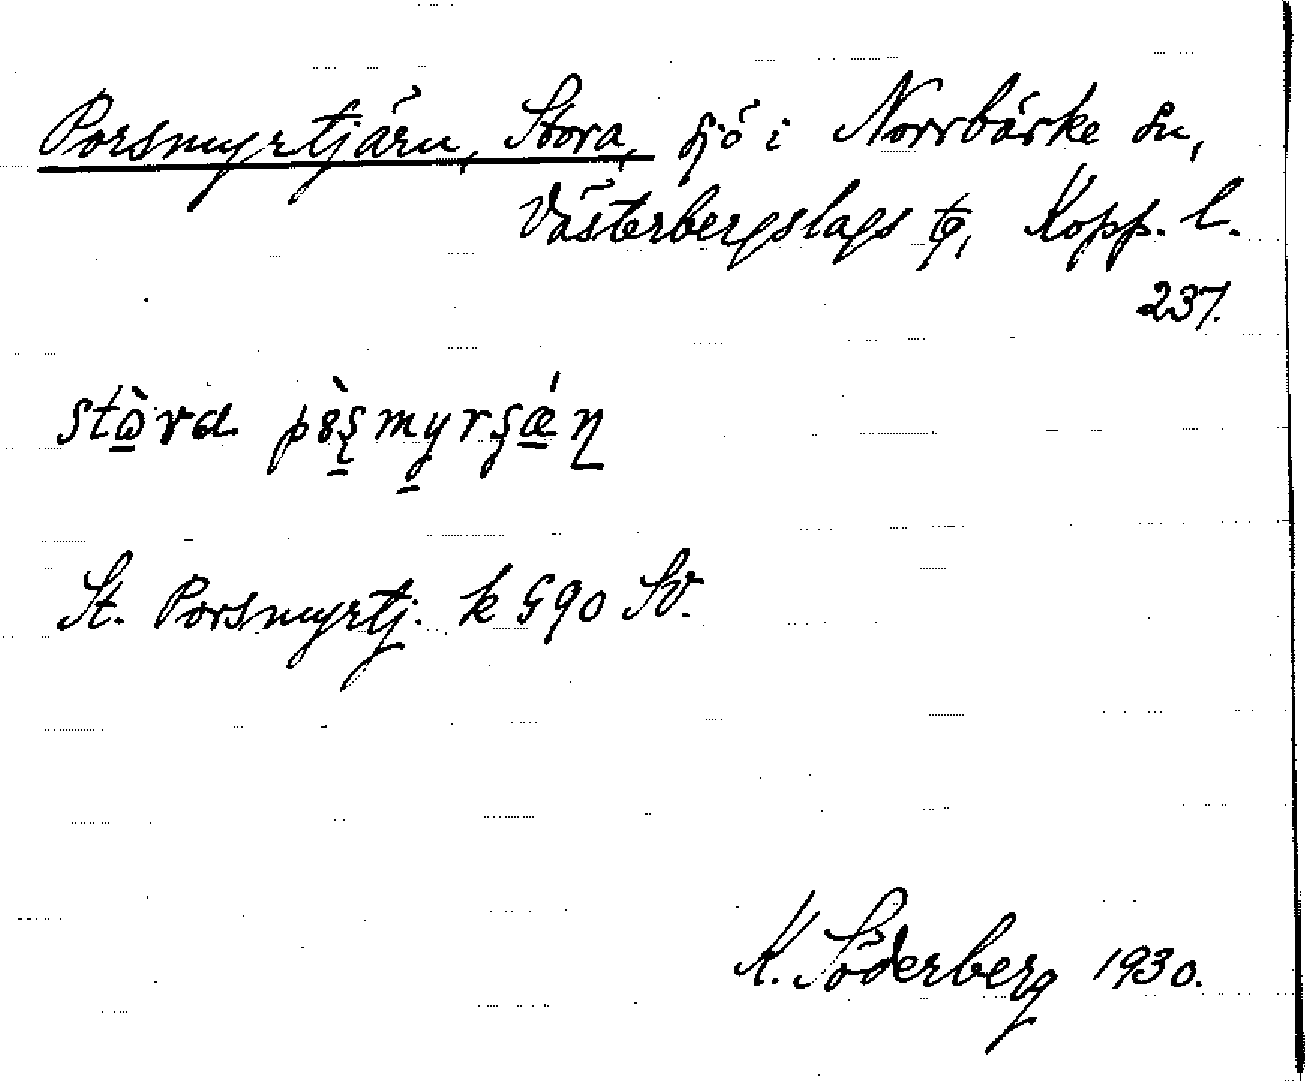 Porsmyrtjärn, Stora, sjö i Norrbärke sn,
Västerbergslags tg, Kopp. l.
237.
St. Porsmyrtj. k G90 SV.
K. Söderberg 1930.